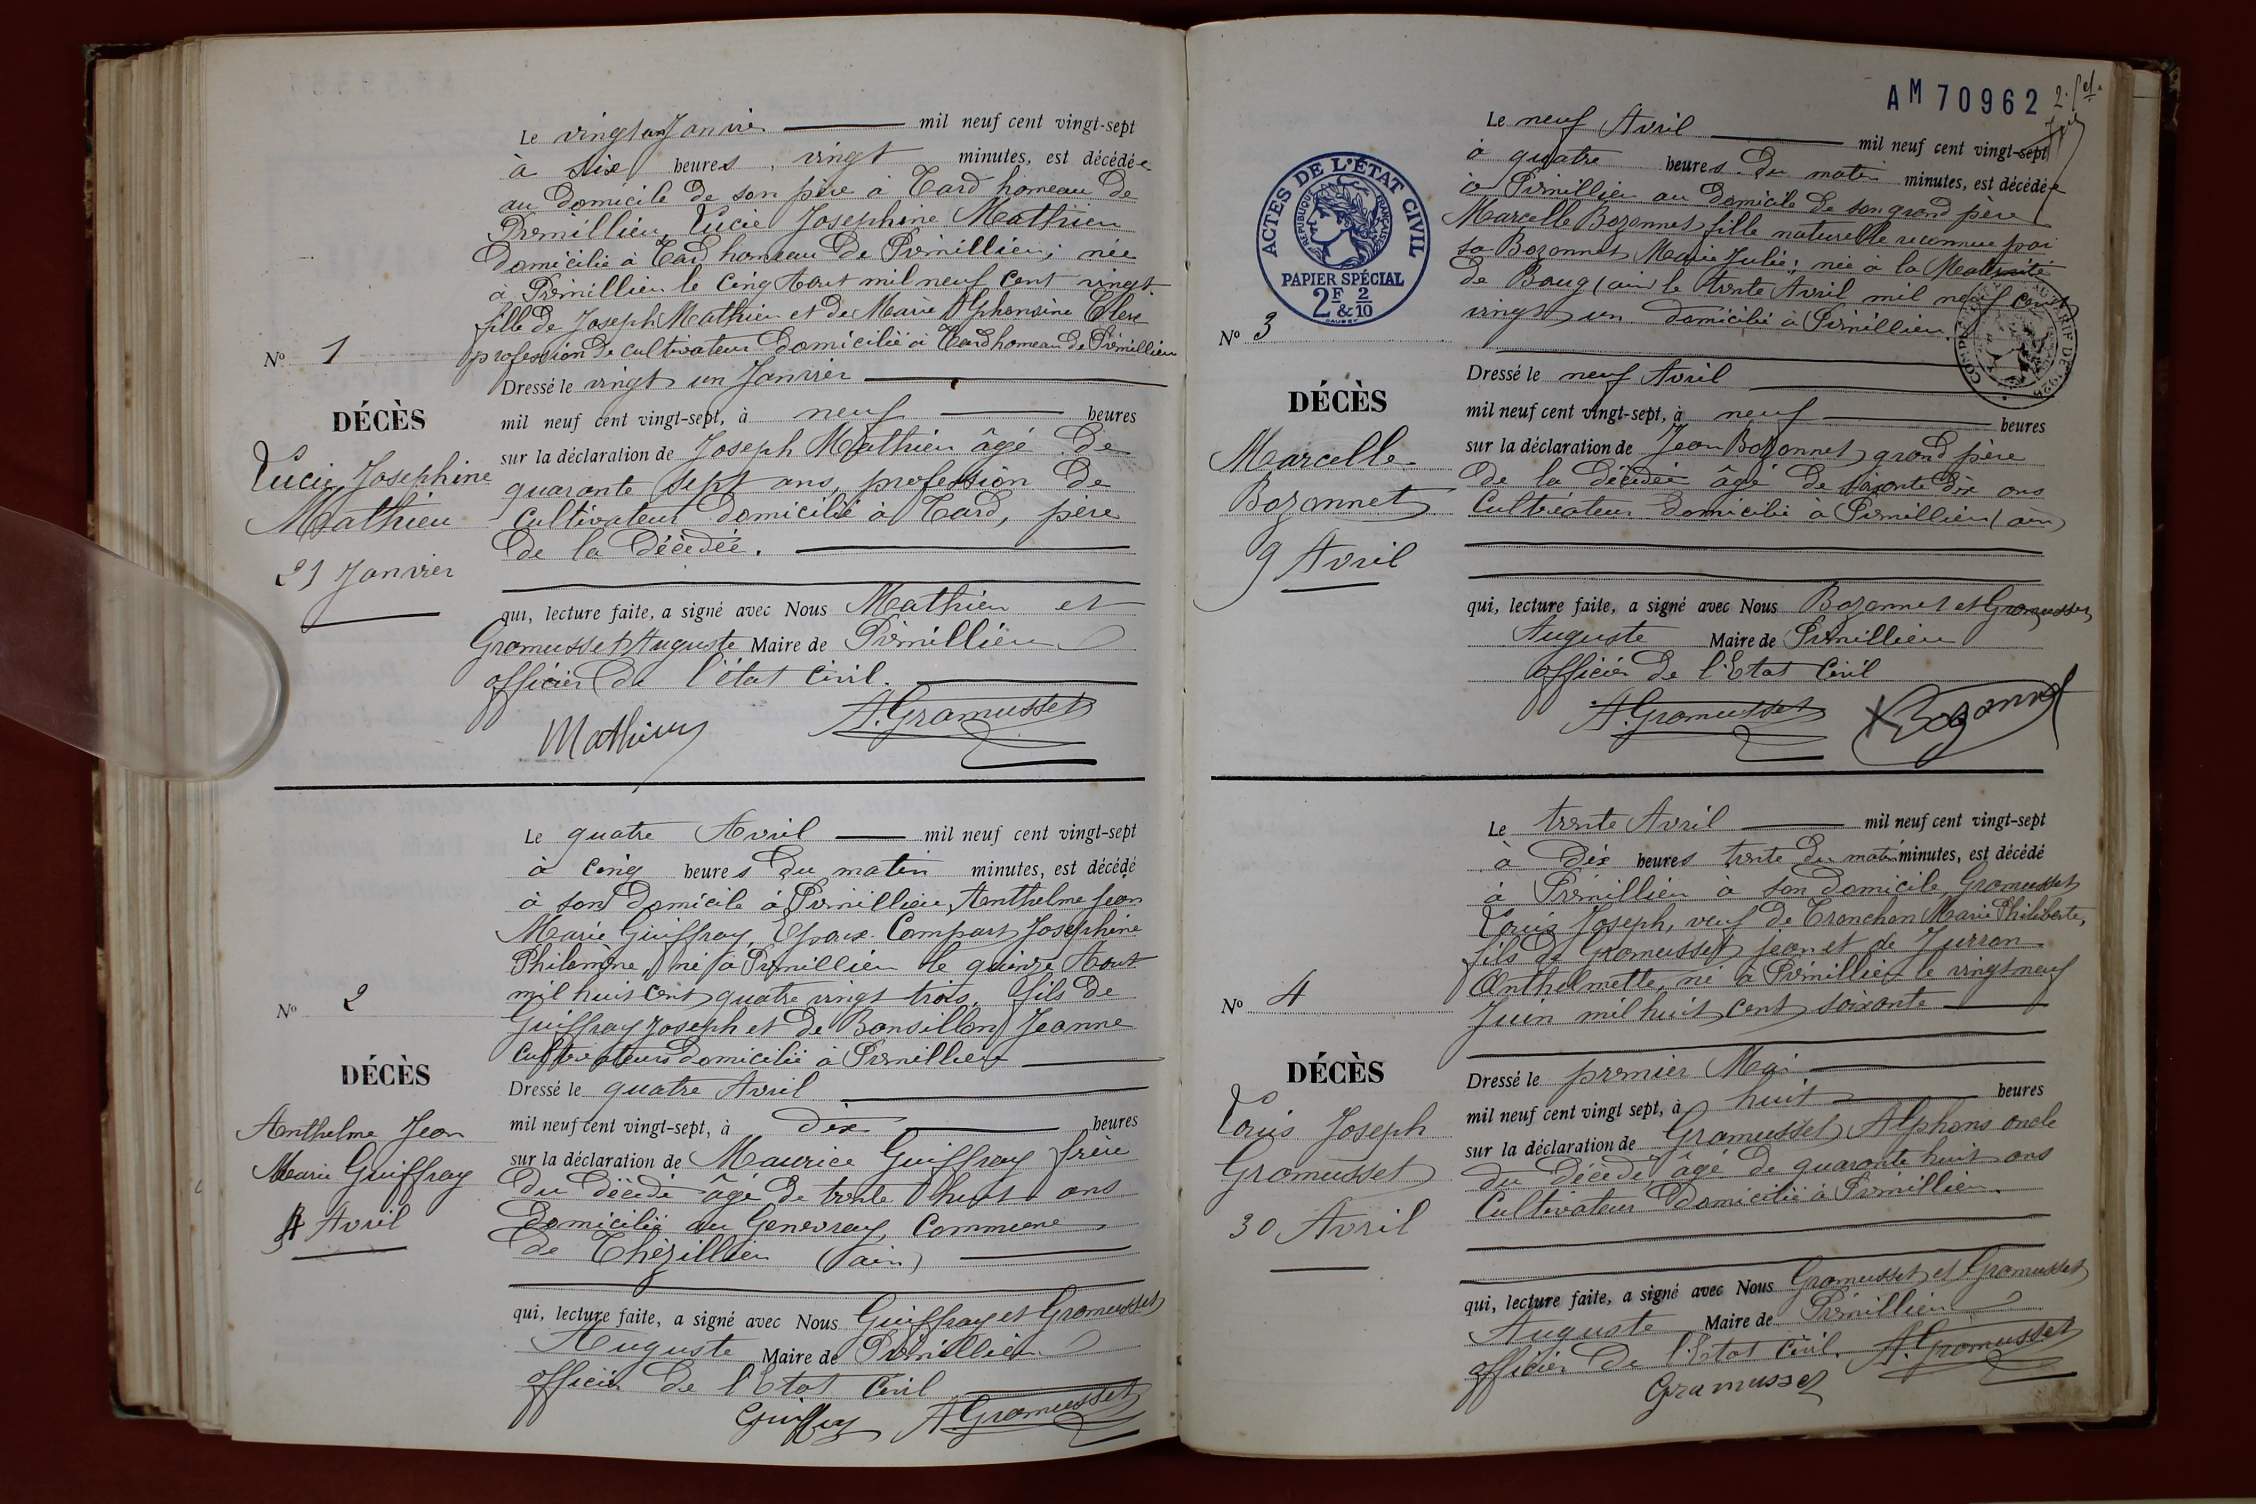 Le vingt un Janvier mil neuf cent vingt-sept
à six heures, vingt minutes, est décédée
au domicile de son père à Tard hameau de
Prémillieu, Lucie Josephine Mathieu
domicilié à Tard hameau de Prémillieu; née
à Prémillieu le cinq Aout mil neuf cent vingt.
fille de Joseph Mathieu et de Marie Alphonsine Clerc
profession de cultivateur domicilié à Tard hameau de Prémillieu
Dressé le vingt un Janvier
mil neuf cent vingt-sept, à neuf heures
sur la déclaration de Joseph Mathieu âgé de
quarante sept ans, profession de
cultivateur domicilié à Tard, père
de la décédée.
qui, lecture faite, a signé avec Nous Mathieu et
Gromusset Auguste Maire de Prémillieu
officier de l'état civil.
Mathieu A. Gromusset
No 1
DÉCÈS
Lucie Josephine
Mathieu
21 Janvier
Le quatre Avril mil neuf cent vingt-sept
à cinq heures du matin minutes, est décédé
à son domicile à Prémillieu, Anthelme Jean
Marie Guiffray, Epoux Compart Josephine
Philomène, né à Prémillieu le quinze Aout
mil huit cent quatre vingt trois, fils de
Guiffray Joseph et de Bonsillon Jeanne
cultivateurs domicilié à Prémillieu
Dressé le quatre Avril
mil neuf cent vingt-sept, à dix heures
sur la déclaration de Maurice Guiffray frère
du décédé âgé de trente huit ans
domicilié au Genevray, commune
de Thézillieu (ain)
qui, lecture faite, a signé avec Nous Guiffray et Gromusset
Auguste Maire de Prémillieu
officier de l'Etat Civil
Guiffray A. Gromusset
No 2
DÉCÈS
Anthelme Jean
Marie Guiffray
4 Avril
AM 70962
ACTES DE L'ÉTAT CIVIL
RÉPUBLIQUE FRANÇAISE
PAPIER SPÉCIAL
2F & 2/10
Le neuf Avril mil neuf cent vingt-sept
à quatre heures du matin minutes, est décédée
à Prémillieu au domicile de son grand père
Marcelle Bozonnet fille naturelle reconnue par
sa Bozonnet Marie Julie; née à la Maternité
de Bourg (ain) le trente Avril mil neuf cent
vingt un domicilié à Prémillieu.
Dressé le neuf Avril
mil neuf cent vingt-sept, à neuf heures
sur la déclaration de Jean Bozonnet grand père
de la décédée âgé de soixante dix ans
Cultivateur domicilié à Prémillieu (ain)
qui, lecture faite, a signé avec Nous Bozonnet et Gromusset
Auguste Maire de Prémillieu
officier de l'Etat Civil
A. Gromusset X Bozonnet
No 3
DÉCÈS
Marcelle
Bozonnet
9 Avril
Le trente Avril mil neuf cent vingt-sept
à dix heures trente du matin minutes, est décédé
à Prémillieu à son domicile, Gromusset
Louis Joseph, veuf de Tronchon Marie Philiberte,
fils de Gromusset Jean et de Jurron
Anthelmette, né à Prémillieu le vingt neuf
Juin mil huit cent soixante
Dressé le premier Mai
mil neuf cent vingt sept, à huit heures
sur la déclaration de Gromusset Alphons oncle
du décédé, âgé de quarante huit ans
Cultivateur Domicilié à Prémillieu.
qui, lecture faite, a signé avec Nous Gromusset et Gromusset
Auguste Maire de Prémillieu
officier de l'Etat civil. A. Gromusset
Gramusset
No 4
DÉCÈS
Louis Joseph
Gromusset
30 Avril